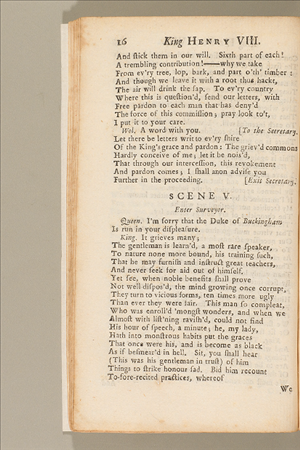 16 King HENRY VIII.
And stick them in our will. Sixth part of each!
A trembling contribution!——why we take
From ev'ry tree, lop, bark, and part o'th' timber:
And though we leave it with a root thus hackt,
The air will drink the sap. To ev'ry country
Where this is question'd, send our letters, with
Free pardon to each man that has deny'd
The force of this commission; pray look to't,
I put it to your care.
Wol. A word with you. [To the Secretary.
Let there be letters writ to ev'ry shire
Of the King's grace and pardon: The griev'd commons
Hardly conceive of me; let it be nois'd,
That through our intercession, this revokement
And pardon comes; I shall anon advise you
Further in the proceeding. [Exit Secretary.
SCENE V.
Enter Surveyor.
Queen. I'm sorry that the Duke of Buckingham
Is run in your displeasure.
King. It grieves many;
The gentleman is learn'd, a most rare speaker,
To nature none more bound, his training such,
That he may furnish and instruct great teachers,
And never seek for aid out of himself.
Yet see, when noble benefits shall prove
Not well dispos'd, the mind growing once corrupt,
They turn to vicious forms, ten times more ugly
Than ever they were fair. This man so compleat,
Who was enroll'd 'mongst wonders, and when we
Almost with list'ning ravish'd, could not find
His hour of speech, a minute; he, my lady,
Hath into monstrous habits put the graces
That once were his, and is become as black
As if besmear'd in hell. Sit, you shall hear
(This was his gentleman in trust) of him
Things to strike honour sad. Bid him recount
The fore-recited practices, whereof
We